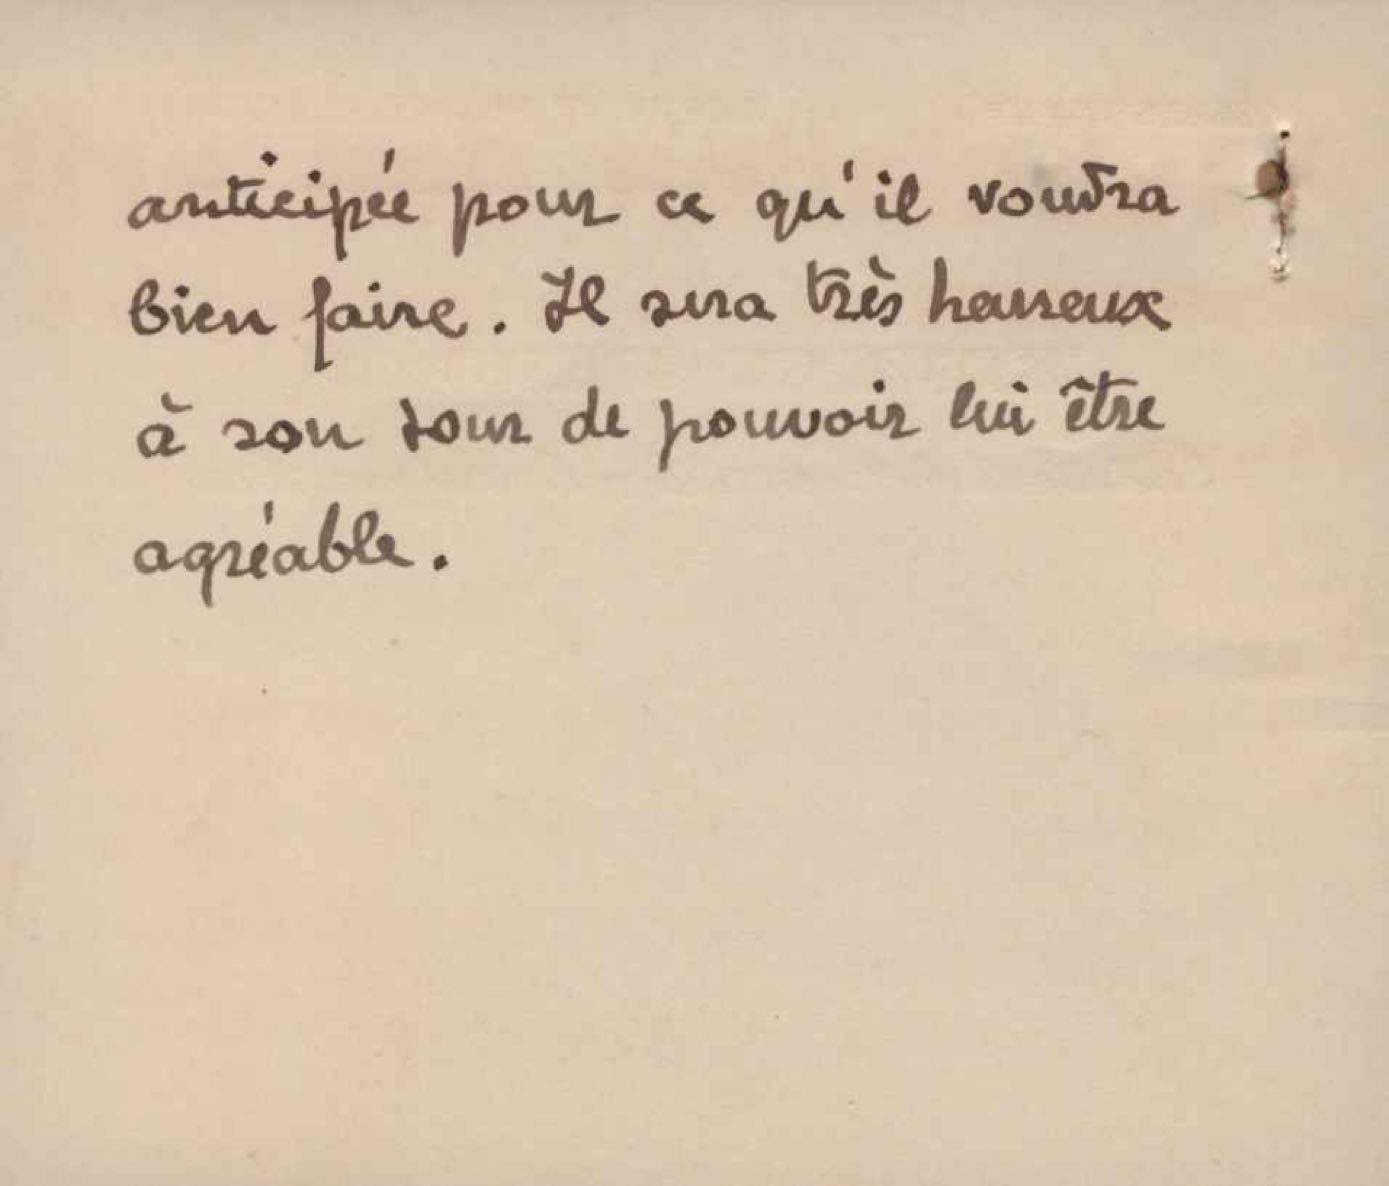 anticipée pour ce qu'il voudra
bien faire. Il sera très heureux
à son tour de pouvoir lui être
agréable.